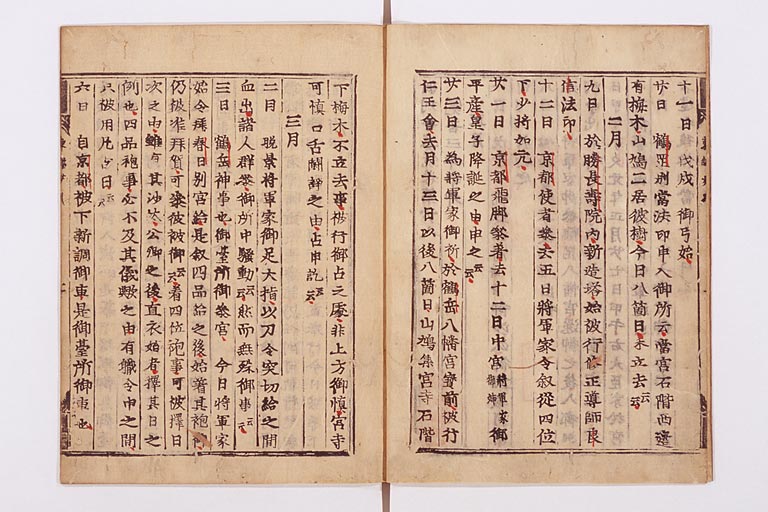 十一日 戊戌 當御弓始
廿日 鶴岳別當法印申入御所云當宮石階西邊
有梅木山鳩二居彼樹今日八箇日未立去云々
二月
九日 於勝長壽院内新造塔始被行修正導師良
信法印
十二日 京都使者參去五日將軍家令叙從四位
下少將如元
廿一日 京都飛脚參著去十二日中宮將軍家御姉御
平産皇子降誕之由申之云々
廿三日 為將軍家御祈於鶴岳八幡宮寳前被行
仁王會去月十三日以後八箇日山鳩集宮寺石階
下梅木不立去事被行御占之處非上方御慎宮寺
可慎口舌鬪諍之由占申訖云々
三月
二日 晩景將軍家御足大指以刀令突切給之間
血出諸人群參御所中騷動云々然而無殊御事云々
三日 鶴岳神事也御臺所御參宮 今日將軍家
始令拜春日別宮給是叙四品給之後始著其袍
仍被准拜賀可參彼被御云々着四位袍事可被擇日
次之由雖有其沙汰公卿之後直衣始者擇其日之
例也四品袍事企不及其儀歟之由有職令申之間
只被用凡日云々
六日 自京都被下新調御車是御臺所御車也